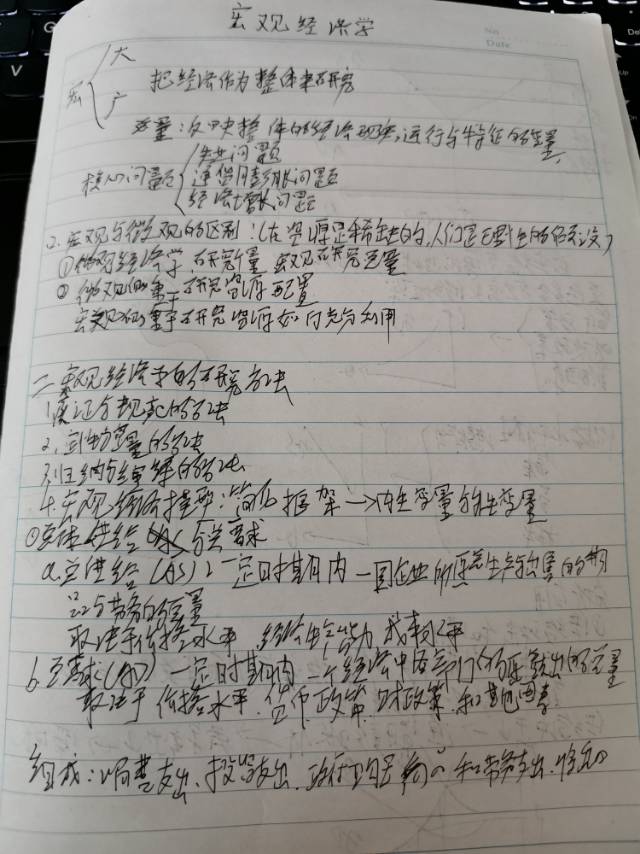 宏观经济学
No
Date
宏 大
广
把经济作为整体来研究
总量:反映整体的经济现象,运行与特征的变量,
核心问题 失业问题
通货膨胀问题
经济增长问题
2.宏观与微观的区别:(在资源是稀缺的,人们是理性的假设)
①微观经济学研究个量 宏观研究总量
② 微观侧重于研究资源配置
宏观侧重于研究资源如何充分利用
二 宏观经济学的研究方法
1.实证与规范的方法
2.变量的方法
3.归纳与演绎的方法
4.宏观经济模型:简化框架→内生变量 外生变量
①总体供给 与总需求
a.总供给(AS):一定时期内一国企业所愿意生产与出售的物
品与劳务的总量
取决于价格水平,经济生产能力 成本水平
b.总需求(AD) 一定时期内一个经济中各部门所愿支出的总量
取决于价格水平.货币政策.财政政策.和其他因素
组成:消费支出、投资支出、政府购买 和劳务支出.净出口